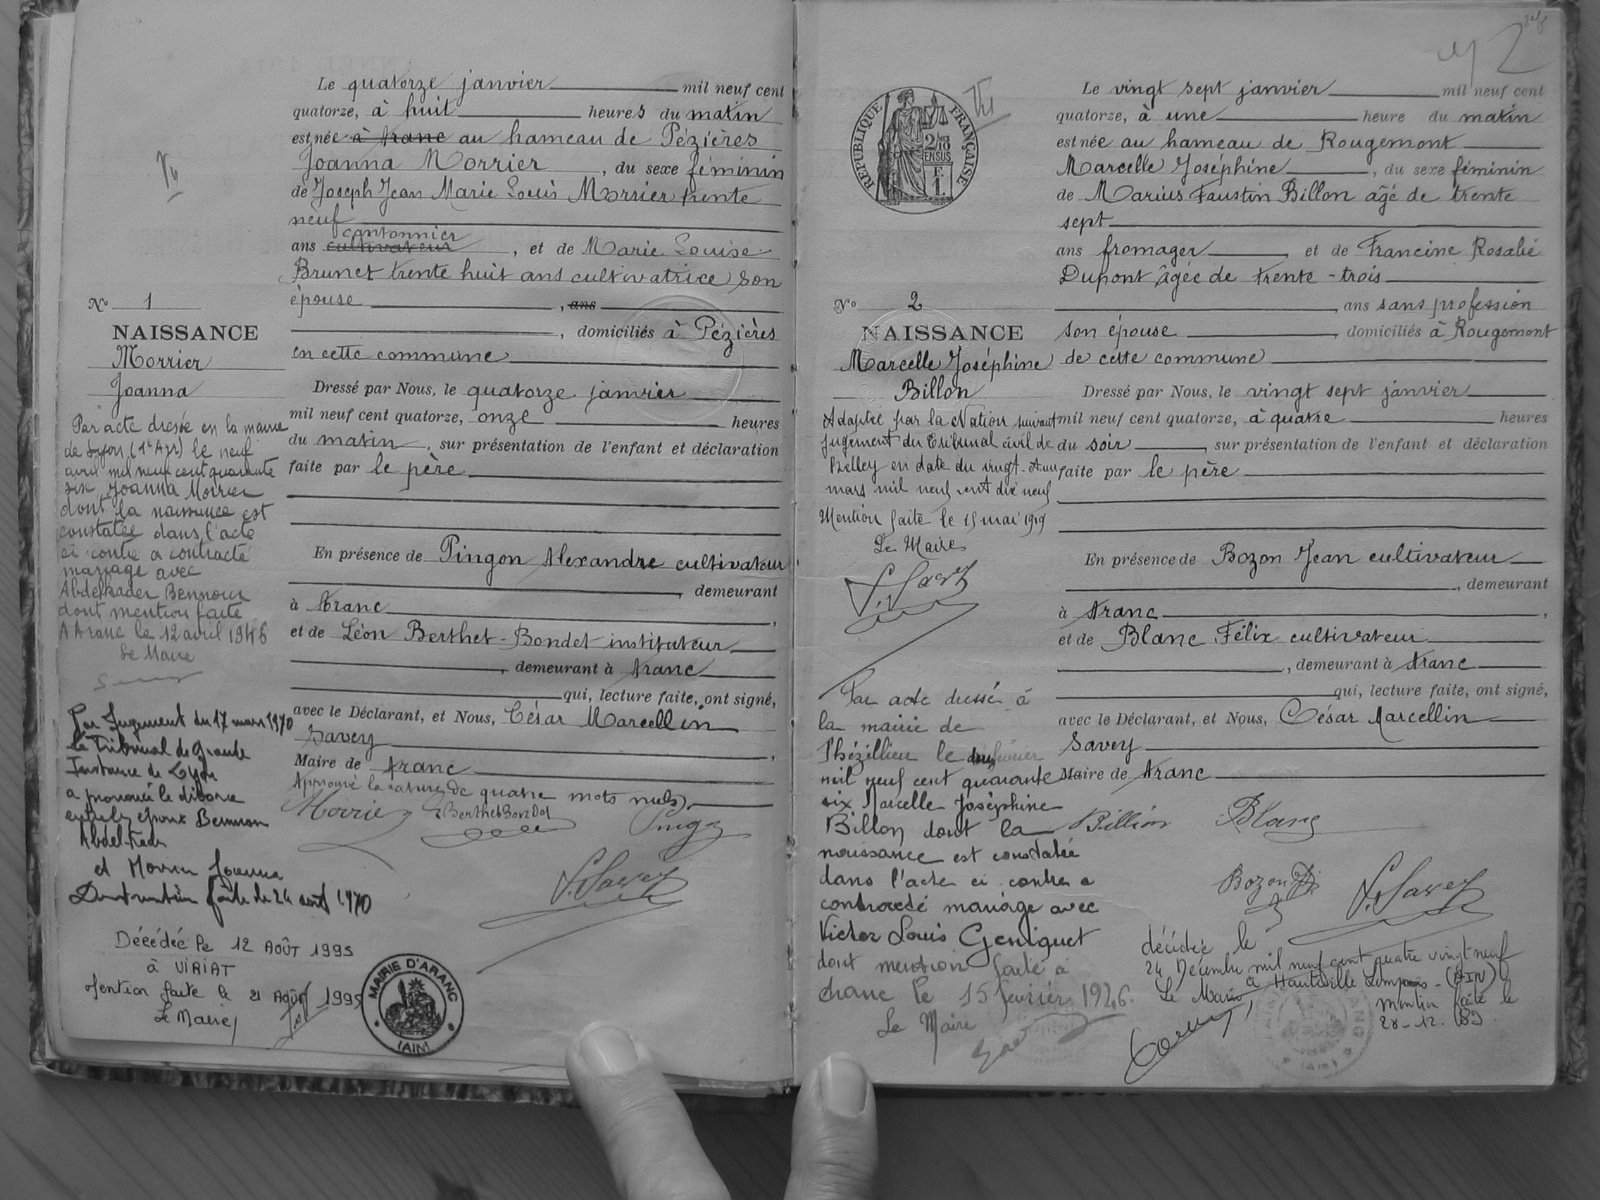 Le quatorze janvier mil neuf cent
quatorze, à huit heures du matin
est née à Aranc au hameau de Pézières
Joanna Morrier, du sexe féminin
de Joseph Jean Marie Louis Morrier trente
neuf
cantonnier
ans cultivateur, et de Marie Louise
Brunet trente huit ans cultivatrice son
épouse, ans
, domiciliés à Pézières
en cette commune
Dressé par Nous, le quatorze janvier
mil neuf cent quatorze, onze heures
du matin, sur présentation de l'enfant et déclaration
faite par le père
En présence de Pingon Alexandre cultivateur
, demeurant
à Aranc,
et de Léon Berthet-Bondet instituteur
, demeurant à Aranc
qui, lecture faite, ont signé,
avec le Déclarant, et Nous, César Marcellin
Savey,
Maire de Aranc
Approuvé la rature de quatre mots nuls
Morrier BerthetBondet Pingon
Savey
No 1
NAISSANCE
Morrier
Joanna
Par acte dressé en la mairie
de Lyon (1er Arr) le neuf
avril mil neuf cent quarante
six Joanna Morrier
dont la naissance est
constatée dans l'acte
ci contre a contracté
mariage avec
Abdelkader Bennour
dont mention faite
A Aranc le 12 avril 1946
Le Maire
Par Jugement du 17 mars 1970
le Tribunal de Grande
Instance de Lyon
a prononcé le divorce
entre les époux Bennour
Abdel-Kader
et Morrier Joanna
Dont mention faite le 24 août 1970
Décédée le 12 AOÛT 1995
à VIRIAT
Mention faite le 21 Août 1995
Le Maire,
MAIRIE D'ARANC
(AIN)
2
RÉPUBLIQUE FRANÇAISE
Le vingt sept janvier mil neuf cent
quatorze, à une heure du matin
est née au hameau de Rougemont
Marcelle Joséphine, du sexe féminin
de Marius Faustin Billon âgé de trente
sept
ans fromager et de Francine Rosalie
Dupont âgée de trente-trois
, ans sans profession
son épouse, domiciliés à Rougemont
de cette commune
Dressé par Nous, le vingt sept janvier
mil neuf cent quatorze, à quatre heures
du soir, sur présentation de l'enfant et déclaration
faite par le père
En présence de Bozon Jean cultivateur
, demeurant
à Aranc,
et de Blanc Félix cultivateur
, demeurant à Aranc
qui, lecture faite, ont signé,
avec le Déclarant, et Nous, César Marcellin
Savey
Maire de Aranc
Billion Blanc
Bozon Savey
No 2
NAISSANCE
Marcelle Joséphine
Billon
Adoptée par la Nation suivant
jugement du Tribunal civil de
Belley en date du vingt-et-un
mars mil neuf cent dix neuf
Mention faite le 15 mai 1919
Le Maire
Savey
Par acte dressé à
la mairie de
Thézillieu le
mil neuf cent quarante
six Marcelle Joséphine
Billon dont la
naissance est constatée
dans l'acte ci contre a
contracté mariage avec
Victor Louis Geniquet
dont mention faite à
Aranc le 15 février 1946.
Le Maire
décédée le
24 Décembre mil neuf cent quatre vingt neuf
à Hauteville Lompnes - (AIN)
Le Maire
mention faite le
28-12. 89.